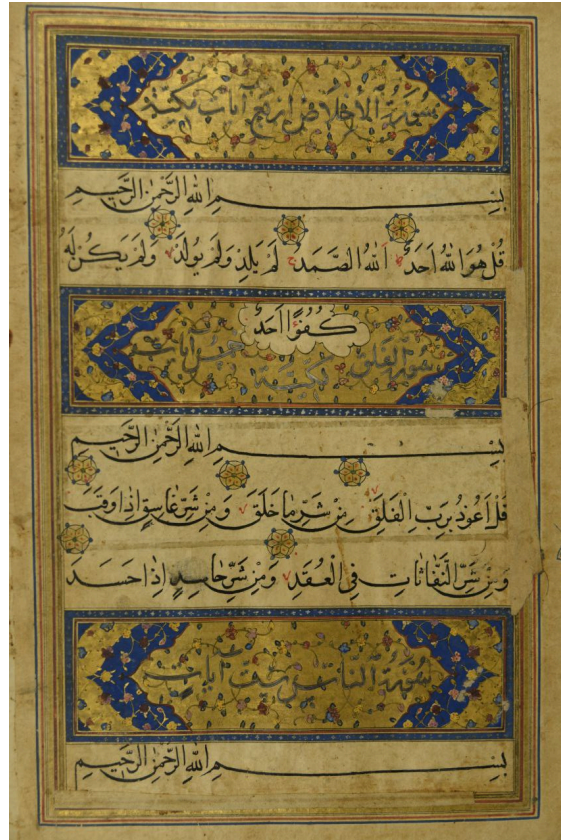 سورة الاخلاص اربع آيات مكية
بِسْمِ اللهِ الرَّحْمٰنِ الرَّحِيمِ
قُلْ هُوَ اللهُ اَحَدٌ اَللهُ الصَّمَدُ لَمْ يَلِدْ وَلَمْ يُولَدْ وَلَمْ يَكُنْ لَهُ
كُفُوًا اَحَدٌ
سورة الفلق خمس آيات
مكية
بِسْمِ اللهِ الرَّحْمٰنِ الرَّحِيمِ
قُلْ اَعُوذُ بِرَبِّ الْفَلَقِ مِنْ شَرِّ مَا خَلَقَ وَمِنْ شَرِّ غَاسِقٍ اِذَا وَقَبَ
وَمِنْ شَرِّ النَّفَّاثَاتِ فِي الْعُقَدِ وَمِنْ شَرِّ حَاسِدٍ اِذَا حَسَدَ
سورة الناس ست آيات
بِسْمِ اللهِ الرَّحْمٰنِ الرَّحِيمِ